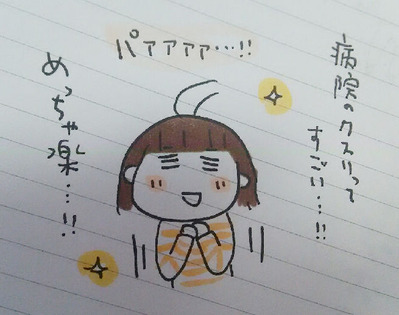 パァァァァ…!!
病院のクスリって
すごい…!!
めっちゃ
楽…!!